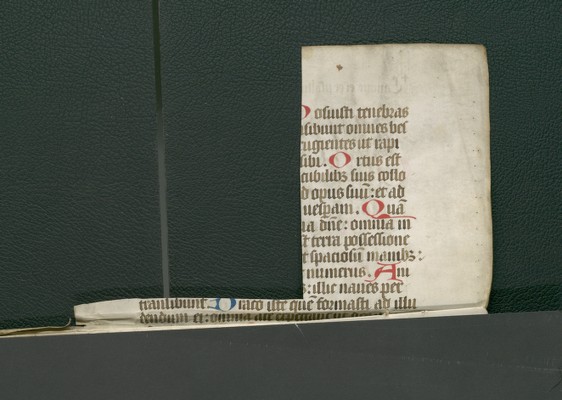 Posuisti tenebras
nsibunt omnes bes
rugientes ut rapi
sibi. Ortus est
cubilibus suis collo
d opus suū: et ad
uesparn. Quā
ia dn̄e: omnia in
st terra possessione
t spaciosū manibꝫ:
numerus. An
s: illic naues per
transibunt. Draco iste quē formasti ad illu
dendum ei: omnia